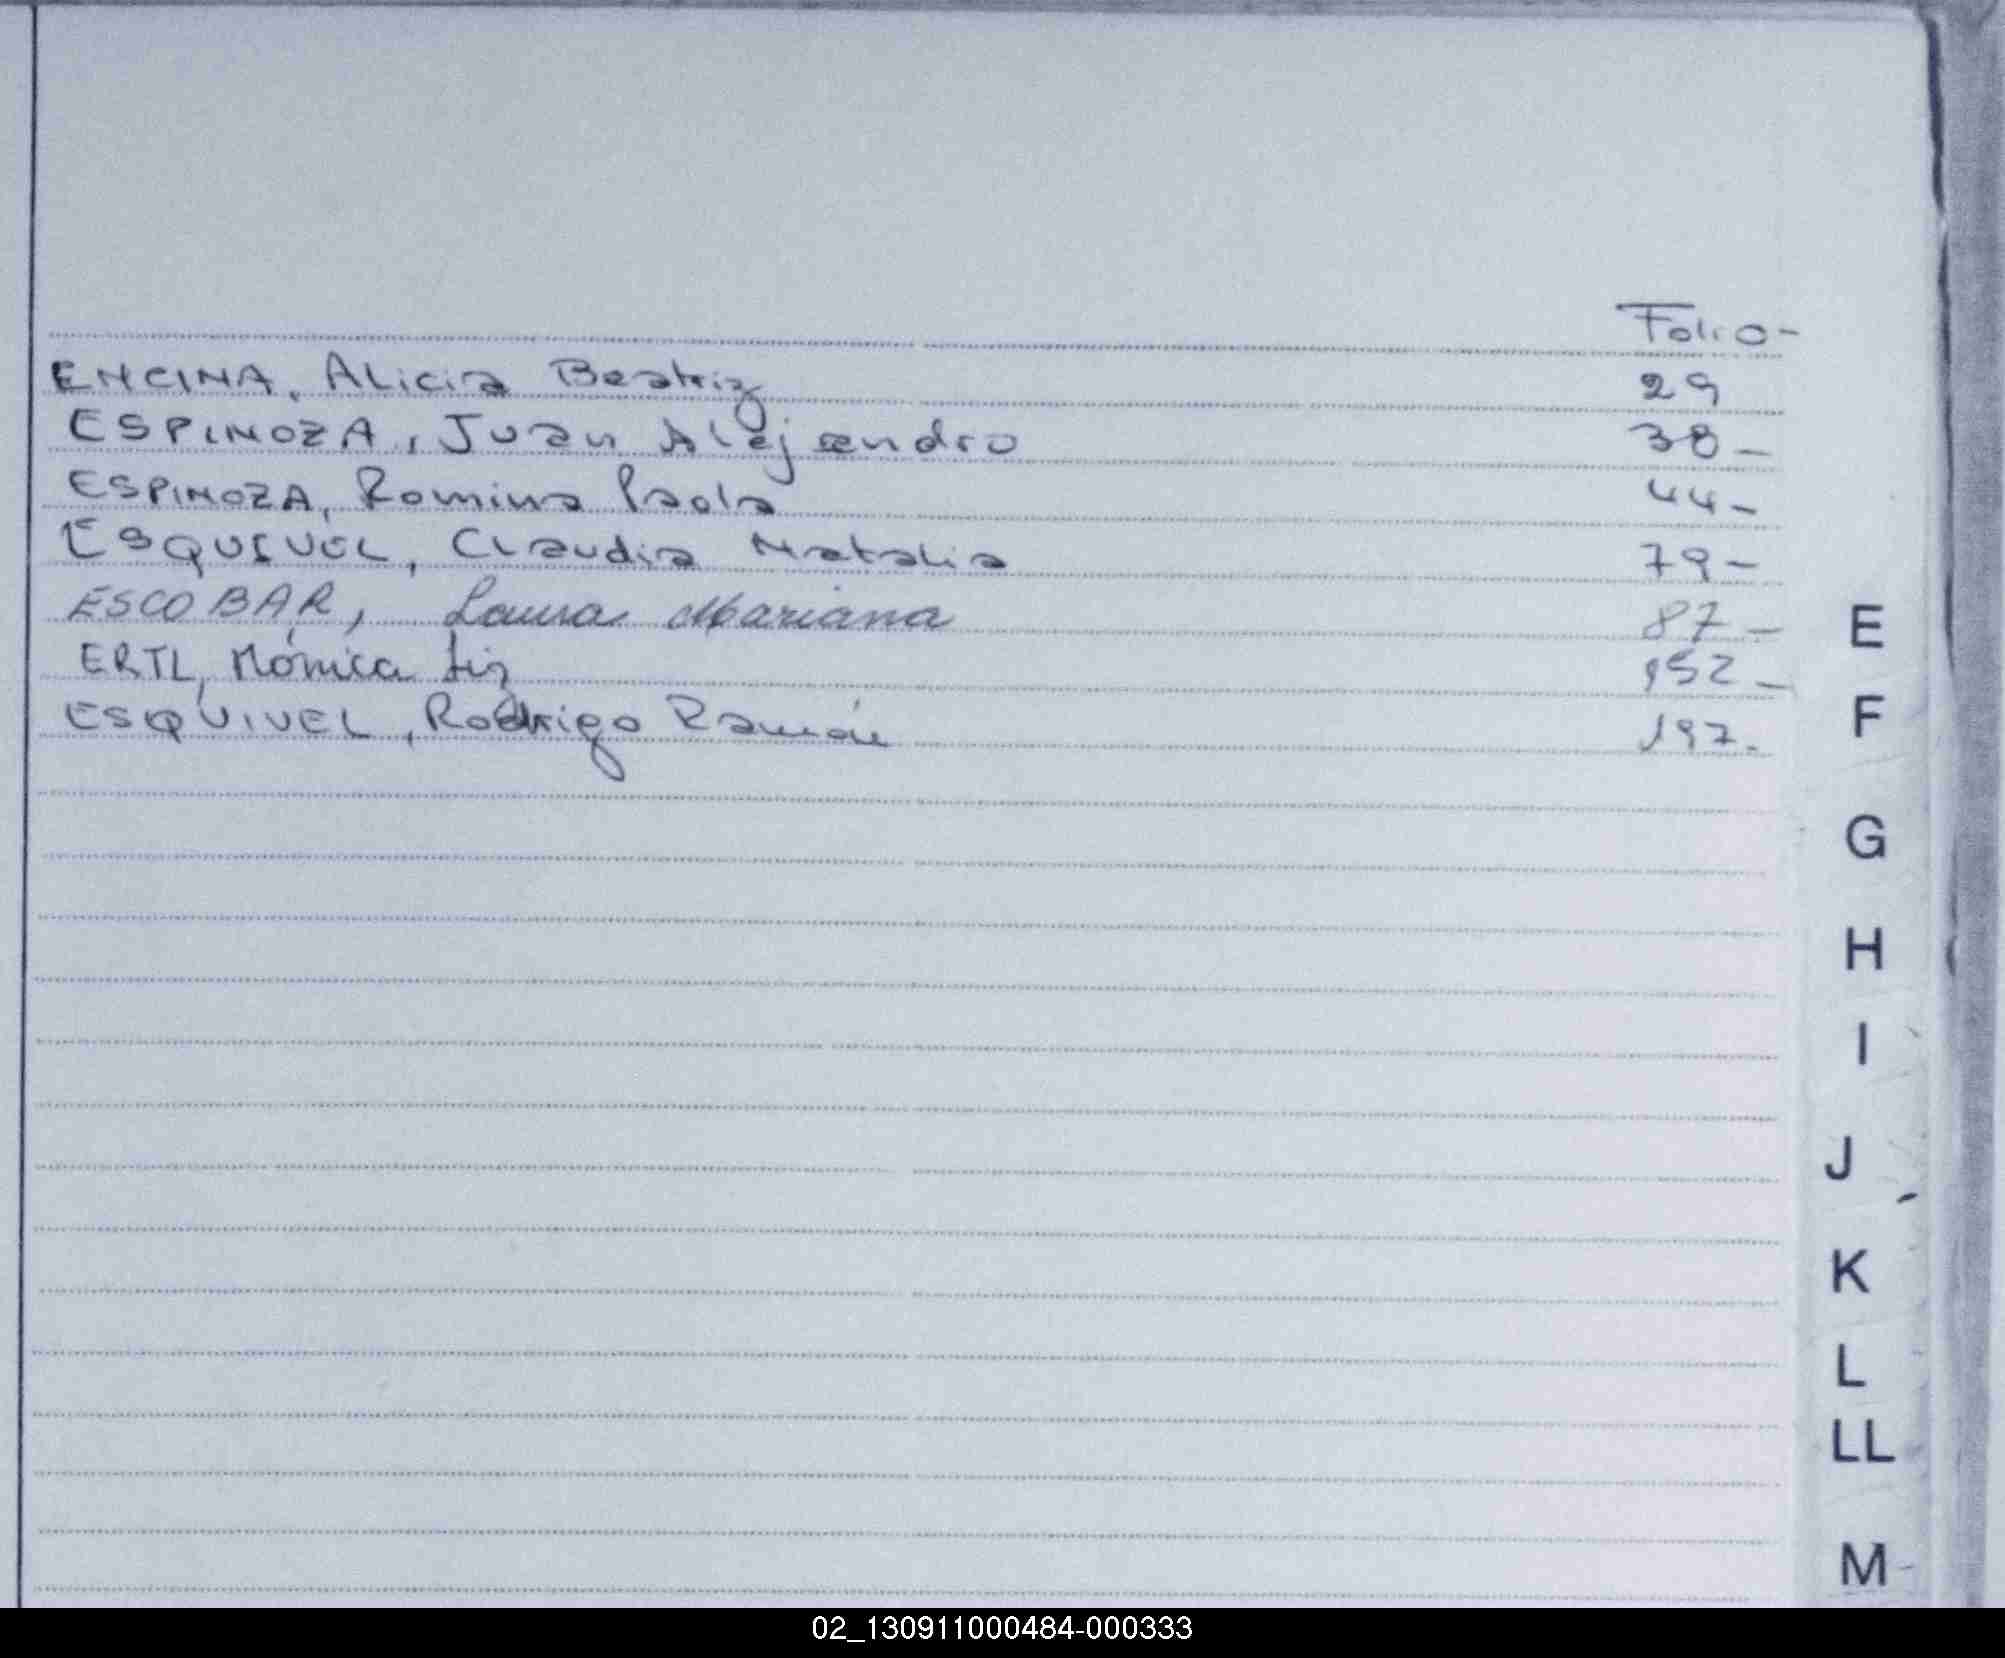 Folio-
ENCINA, Alicia Beatriz 29
ESPINOZA, Juan Alejandro 38-
ESPINOZA, Romina Paola 44-
ESQUIVEL, Claudia Natalia 79-
ESCOBAR, Laura Mariana 87-
ERTL, Mónica Liz 152-
ESQUIVEL, Rodrigo Ramón 197.
E
F
G
H
I
J
K
L
LL
M
02_130911000484-000333